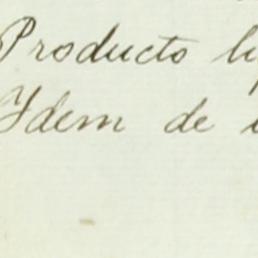 Producto
Ydem de